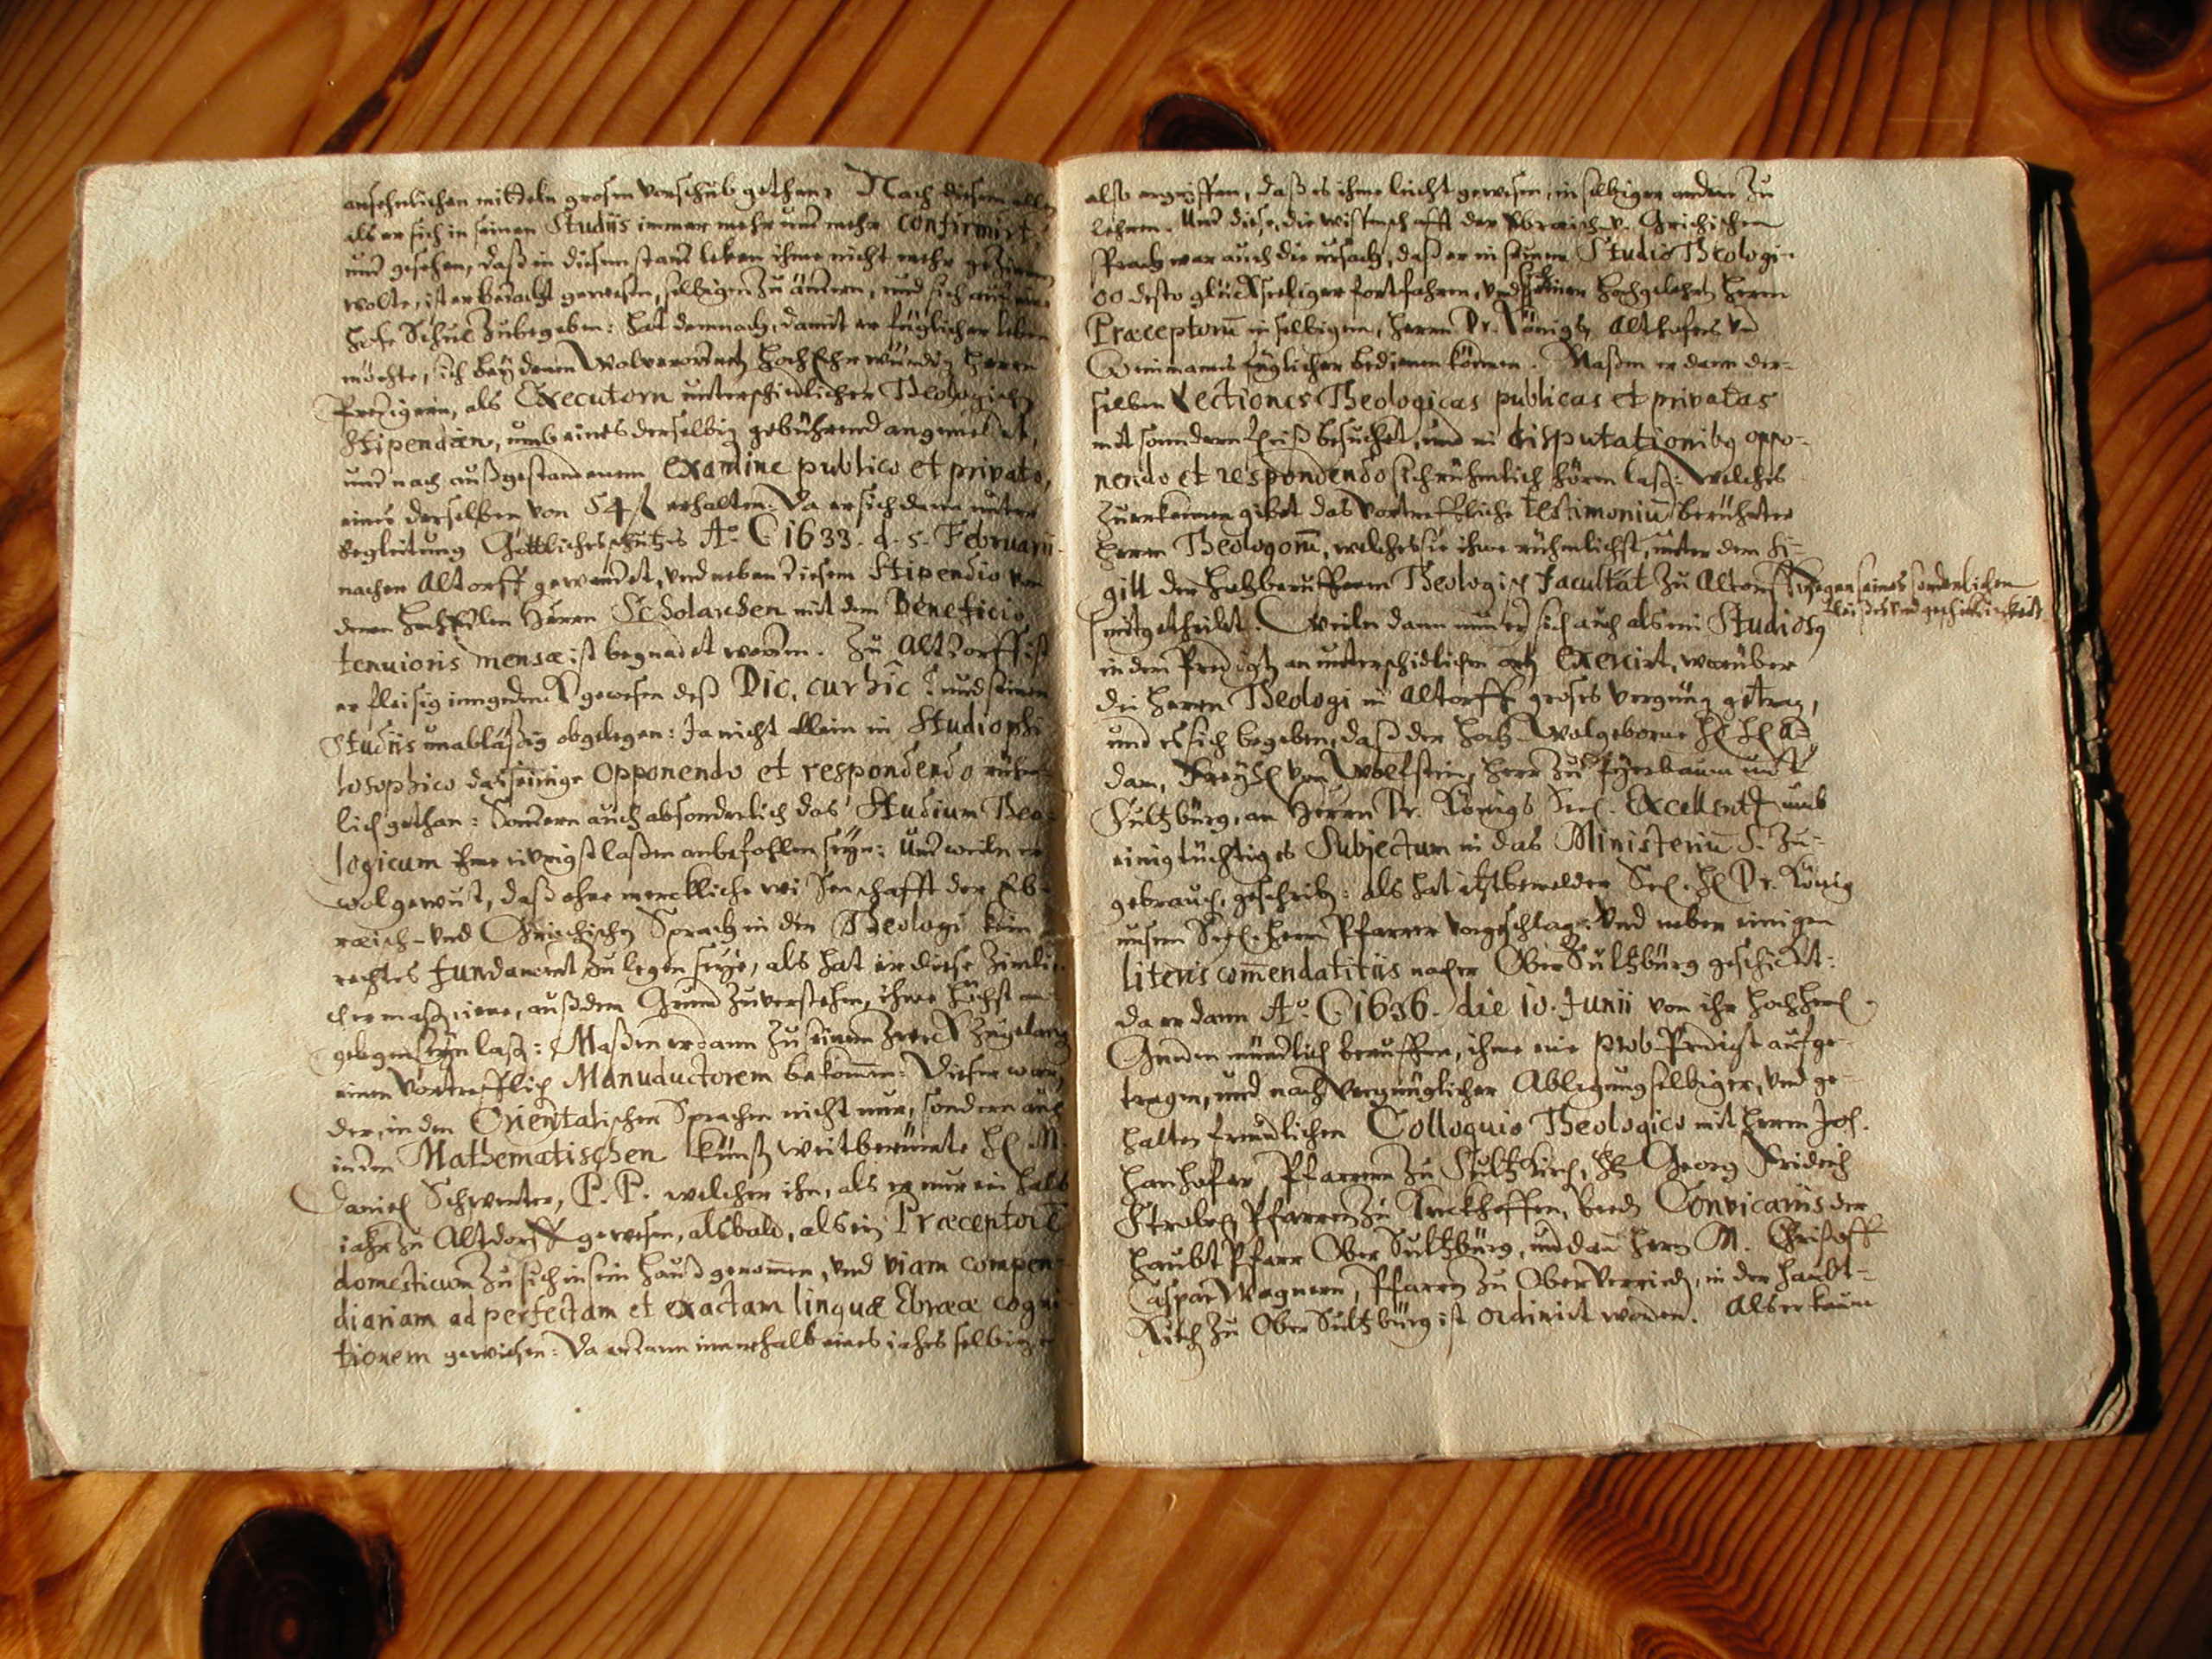 ansehnlichen mitteln grosen vorschub gethan. Nach diesem allen
als er sich in seinen Studiis immer mehr und mehr confirmirt
und gesehen, daß in diesem stand leben ihme nicht mehr
wolte, ist er bedacht gewesen, selbigen zu ändern, und sich auf eine
hohe Schul zubegeben: hat demnach, damit er füglicher leben
möchte, sich beÿ denen Wolverordneten HochEhrwürdigen Herrn
Predigern, als Executorn unterschiedlicher Theologischen
Stipendien, umb eines derselbigen gebührend angemeldet,
und nach außgestandenem Examine publico et privato,
eines derselben von 54 fl erhalten. Da er sich dann unter
begleitung Göttliches schutzes Aō. C 1633. d. 5. Februarii
nacher Altorff gewendet, und neben diesem Stipendio von
denen HochEdlen Herrn Scholarchen mit dem Beneficio
tenuioris mensæ ist begnadet worden. Zu Altdorff ist
er fleisig inngedenck gewesen deß Dic, cur hîc? und seinen
Studiis unabläßig obgelegen: Ja nicht allein in Studio phi
losophico das seinige opponendo et respondendo rühm
lich gethan: Sondern auch absonderlich das Studium Theo
logicum ihme eivrigst laßen anbefohlen seÿn: Und weiln er
wol gewust, daß ohne merckliche wissenschafft der Eb
ræisch- und Griechischen Sprach in der Theologi kein
rechtes fundament zu legen seye, als hat er diese zimli
cher maßen, auß dem Grund zuverstehen, ihme höchst an
gelegen seÿn laßen: Maßen er dann zu seinem zweck zugelangen
einen vortrefflichen Manuductorem bekom̄en: Dieser war
der, in den Orientalischen Sprachen nicht nur, sondern auch
in den Mathematischen künsten weitberümte H. M.
Daniel Schwenter, P. P. welcher ihn, als er nur ein halb
jahr zu Altdorff gewesen, alsbald, als ein Præceptorē
domesticum zu sich in sein hauß genom̄en, und viam compen
diariam ad perfectam et exactam linguæ Ebrææ cogni
tionem gewiesen: Da er dann innerhalb eines jahrs selbige
also ergriffen, daß es ihme leicht gewesen, in selbiger andere zu
lehren. Und diese, die wissenschafft der Ebræisch- u. Grichischen
Sprach war auch die ursach, daß er in seinem Studio Theologi-
co desto glückseeliger fortfahren, und sich seiner Hochgelehrten Herrn
Præceptorum̄ in selbigem, Herrn Dr. Königs, Althofers und
Weinmanns füglicher bedienen können. Maßen er dann der-
selben Lectiones Theologicas publicas et privatas
mit sonndern fleiß besuchet, und in disputationibus oppo-
nendo et respondendo sich rühmlich hören laßen: Welches
zuerkennen gibet das vortreffliche testimoniū berührter
Herrn Theologorū, welches sie ihme rühmlichst, unter dem Si-
gill der Hochberuffenen Theologischen Facultät zu Altorff wegen seines sonderlichen
fleißes und geschicklichkeit
mitgetheilet. Weiln dann nun er sich auch als ein Studiosus
in dem Predigen an unterschidlichen orten exercirt, worüber
die Herrn Theologi in Altorff groses vergnügen getragen,
und es sich begeben, daß der Hoch-Wolgeborne H. H. A-
dam, Freÿh. von Wolfstein, Herr zu
Sultzbürg, an Herrn Dr. Königs Seel. Excellentz umb
einig tüchtiges Subjectum in das Ministeriū S. zu-
gebrauchen, geschrieben: als hat itztbemelder Seel. H. Dr. König
unsern Seel. Herrn Pfarrer vorgeschlagen: Und neben einigen
literis com̄endatitiis nacher Ober Sultzbürg geschickt:
da er dann Aō. C 1636. die 10. Junii von ihr HochHerrl.
Gnaden mündlich beruffen, ihme eine prob-Predigt aufge-
tragen, und nach vergnüglicher Ablegung selbiger, und ge-
halten freundlichen Colloquio Theologico mit Herrn Joh.
Hanhofer, Pfarrern zu Sultzkirch, H. Georg Friderich
Stroben Pfarrern zu beeden Convicariis der
Haubt Pfarr Ober Sultzbürg, und dan̄ Herrn M. Christoff
Caspar Wagnern, Pfarrern zu Oberferrieden, in der haubt-
Kirch zu Ober Sultzbürg ist ordinirt worden. Als er kaum